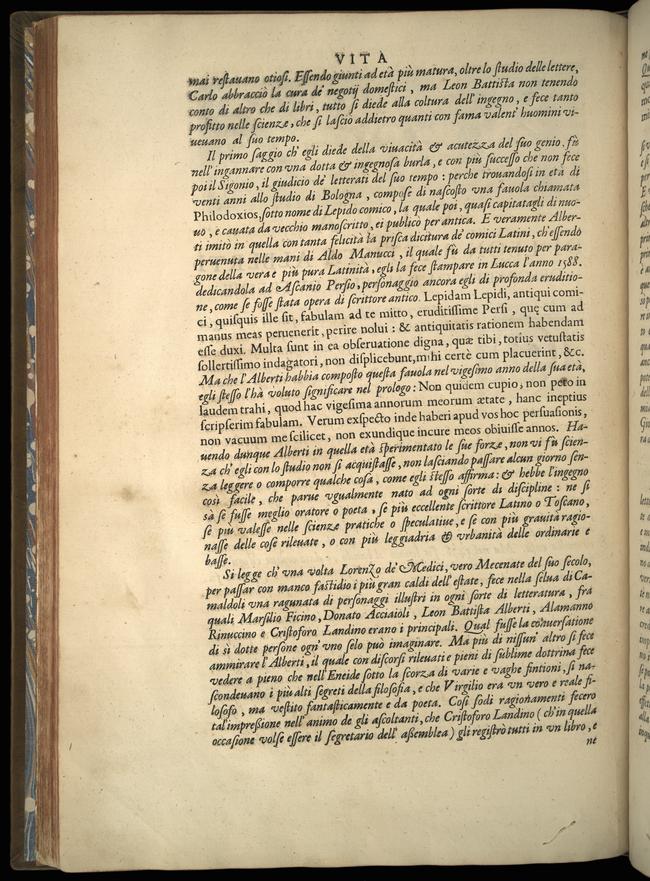 VITA
mai restauano otiosi. Essendo giunti ad età più matura, oltre lo studio delle lettere,
Carlo abbracciò la cura de' negotij domestici, ma Leon Battista non tenendo
conto di altro che di libri, tutto si diede alla coltura dell'ingegno, e fece tanto
profitto nelle scienze, che si lasciò addietro quanti con fama valent' huomini vi-
ueuano al suo tempo.
Il primo saggio ch' egli diede della viuacità & acutezza del suo genio, fù
nell'ingannare con vna dotta & ingegnosa burla, e con più successo che non fece
poi il Sigonio, il giudicio de' letterati del suo tempo: perche trouandosi in età di
venti anni allo studio di Bologna, compose di nascosto vna fauola chiamata
Philodoxios, sotto nome di Lepido comico, la quale poi, quasi capitatagli di nuo-
uo, e cauata da vecchio manoscritto, ei publicò per antica. E veramente Alber-
ti imitò in quella con tanta felicità la prisca dicitura de' comici Latini, ch'essendo
peruenuta nelle mani di Aldo Manucci, il quale fù da tutti tenuto per para-
gone della vera e più pura Latinità, egli la fece stampare in Lucca l'anno 1588.
dedicandola ad Ascanio Persio, personaggio ancora egli di profonda eruditio-
ne, come se fosse stata opera di scrittore antico. Lepidam Lepidi, antiqui comi-
ci, quisquis ille sit, fabulam ad te mitto, eruditissime Persi, quę cum ad
manus meas peruenerit, perire nolui: & antiquitatis rationem habendam
esse duxi. Multa sunt in ea obseruatione digna, quæ tibi, totius vetustatis
sollertissimo indagatori, non displicebunt, mihi certè cum placuerint, &c.
Ma che l'Alberti habbia composto questa fauola nel vigesimo anno della sua età,
egli stesso l'hà voluto significare nel prologo: Non quidem cupio, non peto in
laudem trahi, quod hac vigesima annorum meorum ætate, hanc ineptius
scripserim fabulam. Verum exspecto inde haberi apud vos hoc persuasionis,
non vacuum me scilicet, non exundique incure meos obiuisse annos. Ha-
uendo dunque Alberti in quella età sperimentato le sue forze, non vi fù scien-
za ch' egli con lo studio non si acquistasse, non lasciando passare alcun giorno sen-
za leggere o comporre qualche cosa, come egli stesso affirma: & hebbe l'ingegno
così facile, che parue vgualmente nato ad ogni sorte di discipline: ne si
sà se fusse meglio oratore o poeta, se più eccellente scrittore Latino o Toscano,
se più valesse nelle scienze pratiche o speculatiue, e se con più grauità ragio-
nasse delle cose rileuate, o con più leggiadria & vrbanità delle ordinarie e
basse.
Si legge ch' vna volta Lorenzo de' Medici, vero Mecenate del suo secolo,
per passar con manco fastidio i più gran caldi dell'estate, fece nella selua di Ca-
maldoli vna ragunata di personaggi illustri in ogni sorte di letteratura, frà
quali Marsilio Ficino, Donato Acciaioli, Leon Battista Alberti, Alamanno
Rinuccino e Cristoforo Landino erano i principali. Qual fusse la conuersatione
di sì dotte persone ogn' vno selo può imaginare. Ma più di nissun' altro si fece
ammirare l'Alberti, il quale con discorsi rileuati e pieni di sublime dottrina fece
vedere a pieno che nell'Eneide sotto la scorza di varie e vaghe fintioni, si na-
scondeuano i più alti segreti della filosofia, e che Virgilio era vn vero e reale fi-
losofo, ma vestito fantasticamente e da poeta. Così sodi ragionamenti fecero
tal'impressione nell'animo de gli ascoltanti, che Cristoforo Landino (ch'in quella
occasione volse essere il segretario dell' assemblea) gli registrò tutti in vn libro, e
ne